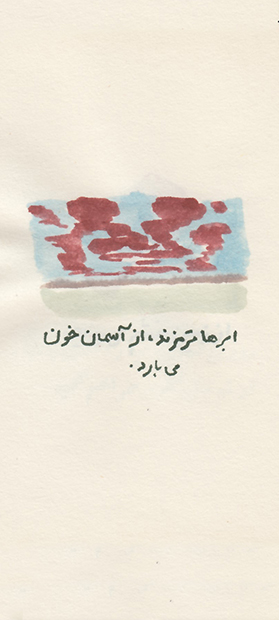 ابرها قرمزند، از آسمان خون
می بارد.